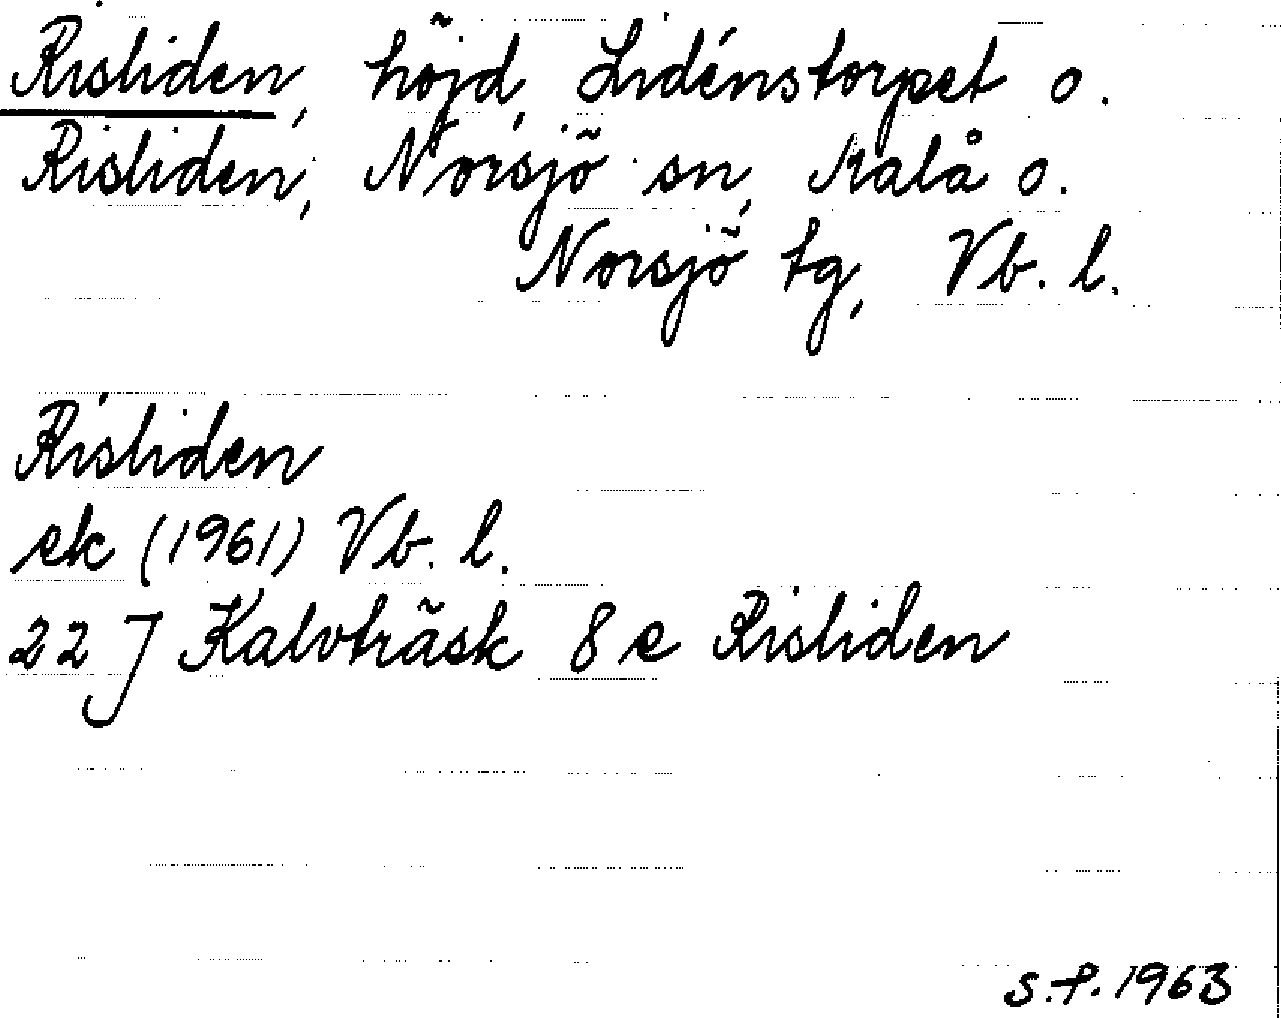 Risliden, höjd, Lidénstorpet o.
Risliden, Norsjö sn, Malå o.
Norsjö tg, Vb. l.
Risliden
ek (1961) Vb. l.
22 J Kalvträsk 8 e Risliden
s.f. 1963